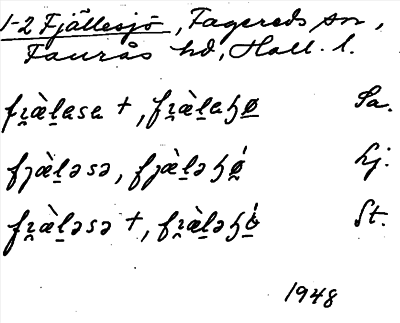 1-2 Fjällesjö, Fagereds sn,
Faurås hd, Hall. l.
fɪ̯æ̀l̠asa +, fɪ̯æ̀l̠aɧø̠ Sa.
fjæ̀l̠əsə, fjæ̀l̠əɧǿ̠ Lj.
fɪ̯æ̀l̠əsə +, fɪ̯æ̀l̠əɧǿ̠ St.
1948